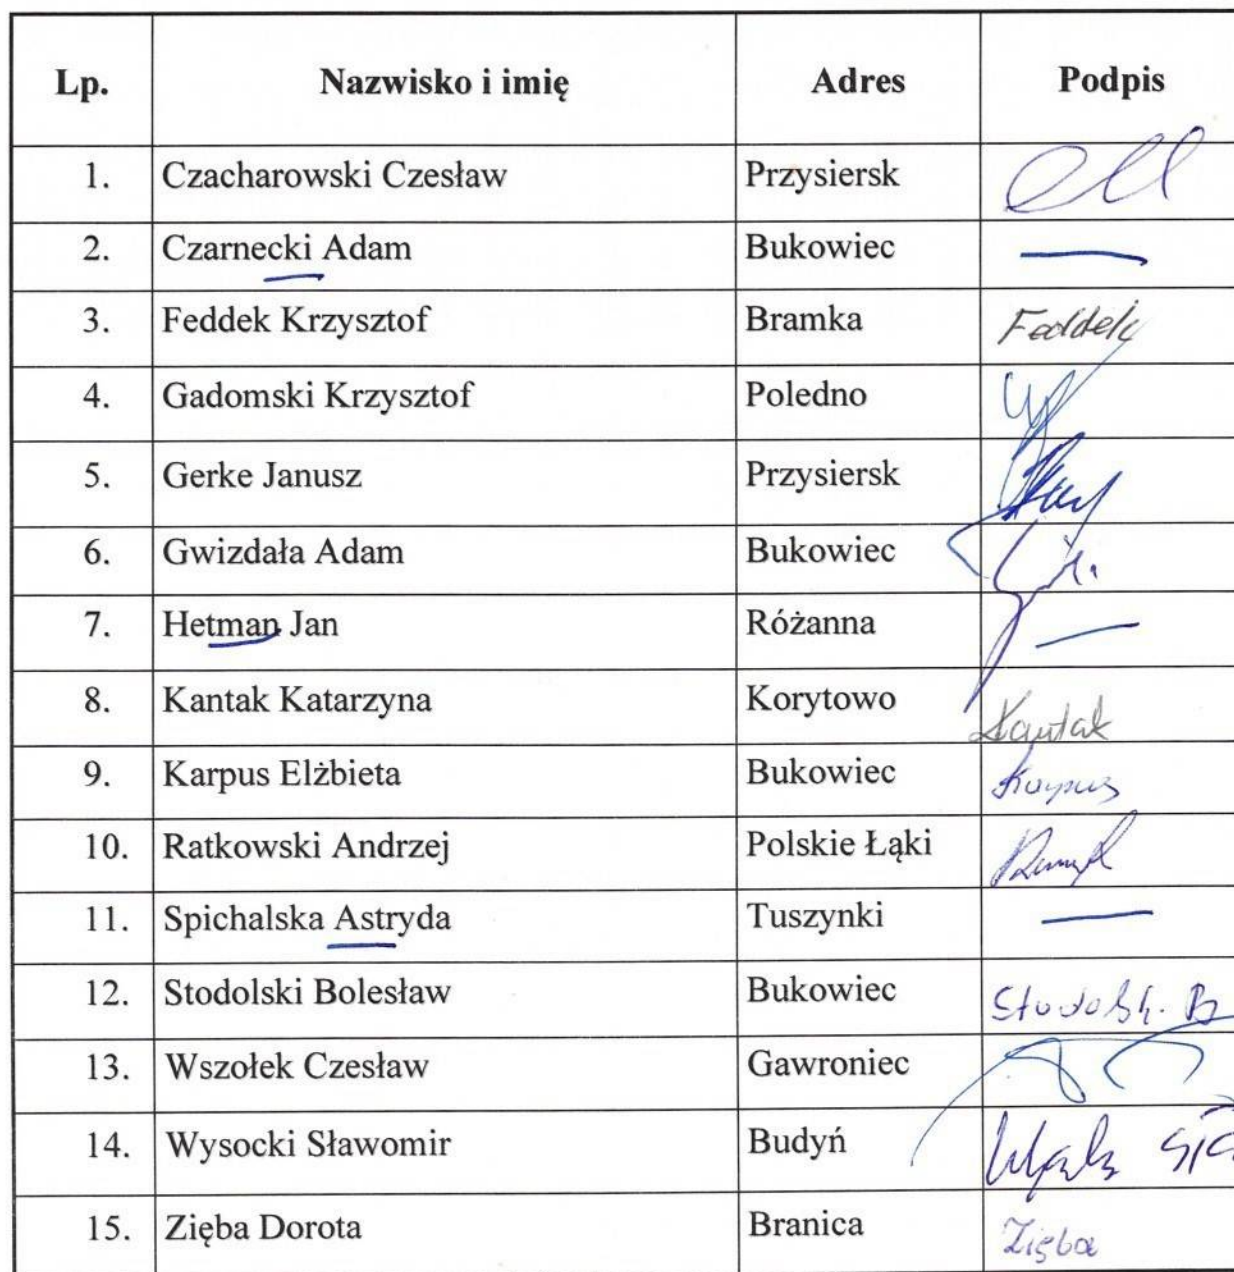 Lp. Nazwisko i imię Adres Podpis
1. Czacharowski Czesław Przysiersk
2. Czarnecki Adam Bukowiec —
3. Feddek Krzysztof Bramka Feddek
4. Gadomski Krzysztof Poledno
5. Gerke Janusz Przysiersk
6. Gwizdała Adam Bukowiec
7. Hetman Jan Różanna —
8. Kantak Katarzyna Korytowo Kantak
9. Karpus Elżbieta Bukowiec Karpus
10. Ratkowski Andrzej Polskie Łąki
11. Spichalska Astryda Tuszynki —
12. Stodolski Bolesław Bukowiec
13. Wszołek Czesław Gawroniec
14. Wysocki Sławomir Budyń
15. Zięba Dorota Branica Zięba